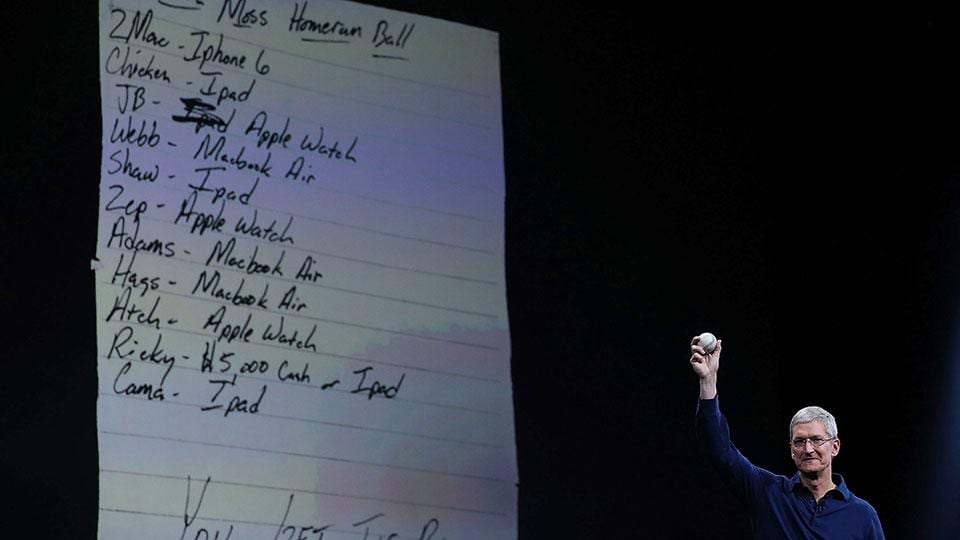 Moss Homerun Ball
2Mac - Iphone 6
Chicken - Ipad
JB - Ipad Apple Watch
Webb - Macbook Air
Shaw - Ipad
Zep - Apple Watch
Adams - Macbook Air
Hags - Macbook Air
Atch - Apple Watch
Ricky - $5,000 Cash or Ipad
Cama - Ipad
You